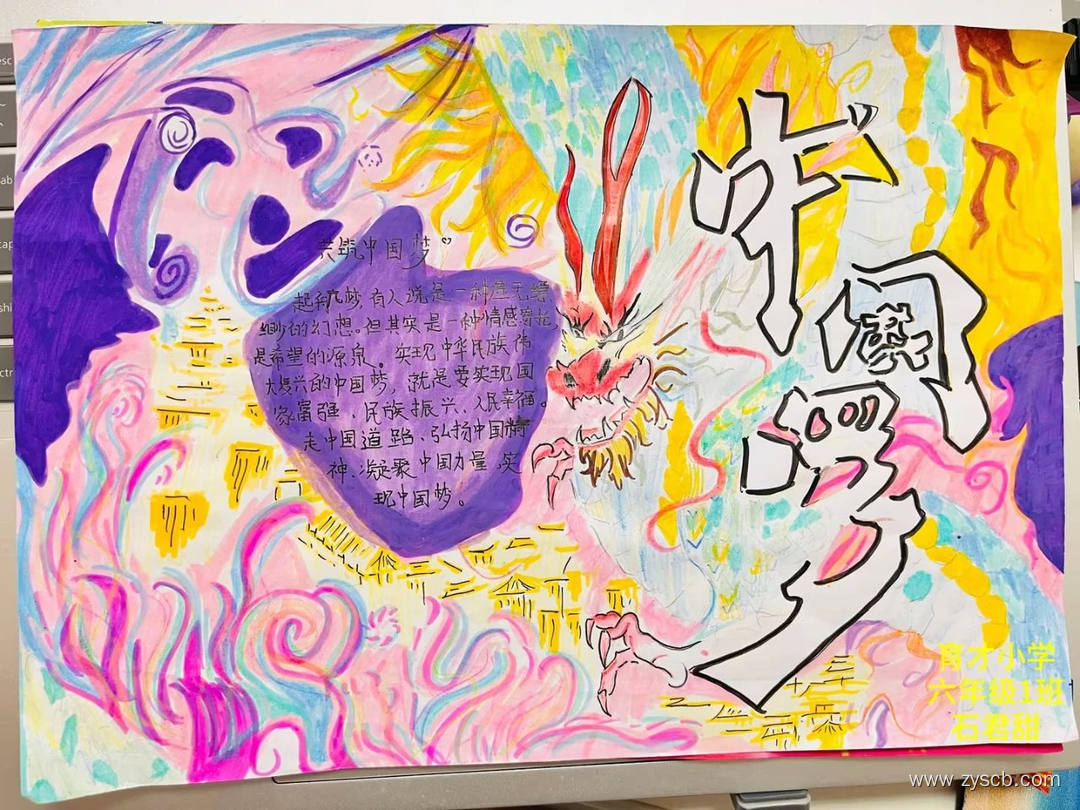 中
国
梦
共筑中国梦
起和梦,有人说是一种虚无缥
缈的幻想。但其实是一种情感寄托,
是希望的源泉。实现中华民族伟
大复兴的中国梦,就是要实现国
家富强、民族振兴、人民幸福。
走中国道路、弘扬中国精
神、凝聚中国力量,实
现中国梦。
育才小学
六年级1班
石君甜
www.zyscb.com
esc
tab